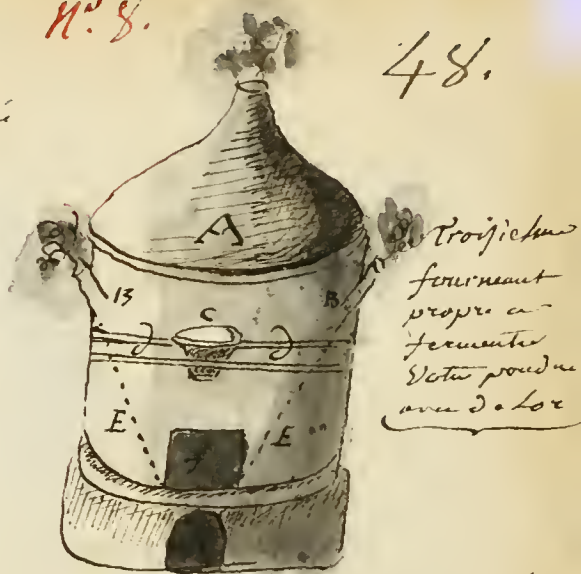 N.º 8.
48.
A
B
B
C
troisieme
fourneaut
propre a
fermenter
Votre poudre
avec de Lor
E
E
f